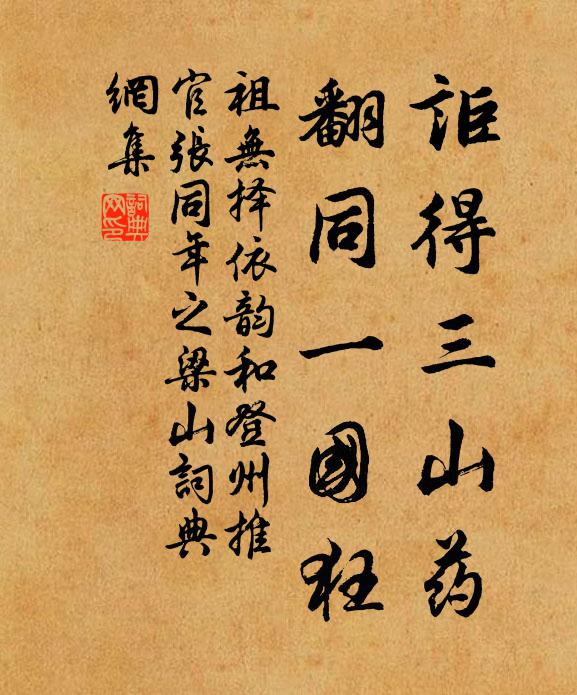 詎得三山药
翻同一國狂
祖無择依韵和登州推
官張同年之梁山詞典
網集
詞典
网印